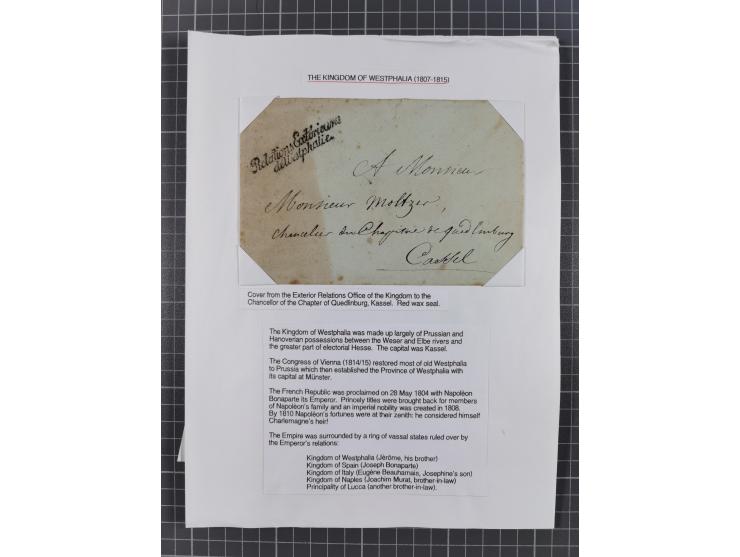 THE KINGDOM OF WESTPHALIA (1807-1815)
Relations Extérieures
de Westphalie.
A Monsieur
Monsieur Moltzer,
chancelier du Chapitre de Quedlinburg
Cassel
Cover from the Exterior Relations Office of the Kingdom to the
Chancellor of the Chapter of Quedlinburg, Kassel.  Red wax seal.
The Kingdom of Westphalia was made up largely of Prussian and
Hanoverian possessions between the Weser and Elbe rivers and
the greater part of electorial Hesse.  The capital was Kassel.
The Congress of Vienna (1814/15) restored most of old Westphalia
to Prussia which then established the Province of Westphalia with
its capital at Münster.
The French Republic was proclaimed on 28 May 1804 with Napolèon
Bonaparte its Emperor.  Princely titles were brought back for members
of Napolèon's family and an imperial nobility was created in 1808.
By 1810 Napolèon's fortunes were at their zenith: he considered himself
Charlemagne's heir!
The Empire was surrounded by a ring of vassal states ruled over by
the Emperor's relations:
Kingdom of Westphalia (Jèrôme, his brother)
Kingdom of Spain (Joseph Bonaparte)
Kingdom of Italy (Eugène Beauharnais, Josephine's son)
Kingdom of Naples (Joachim Murat, brother-in-law)
Principality of Lucca (another brother-in-law).